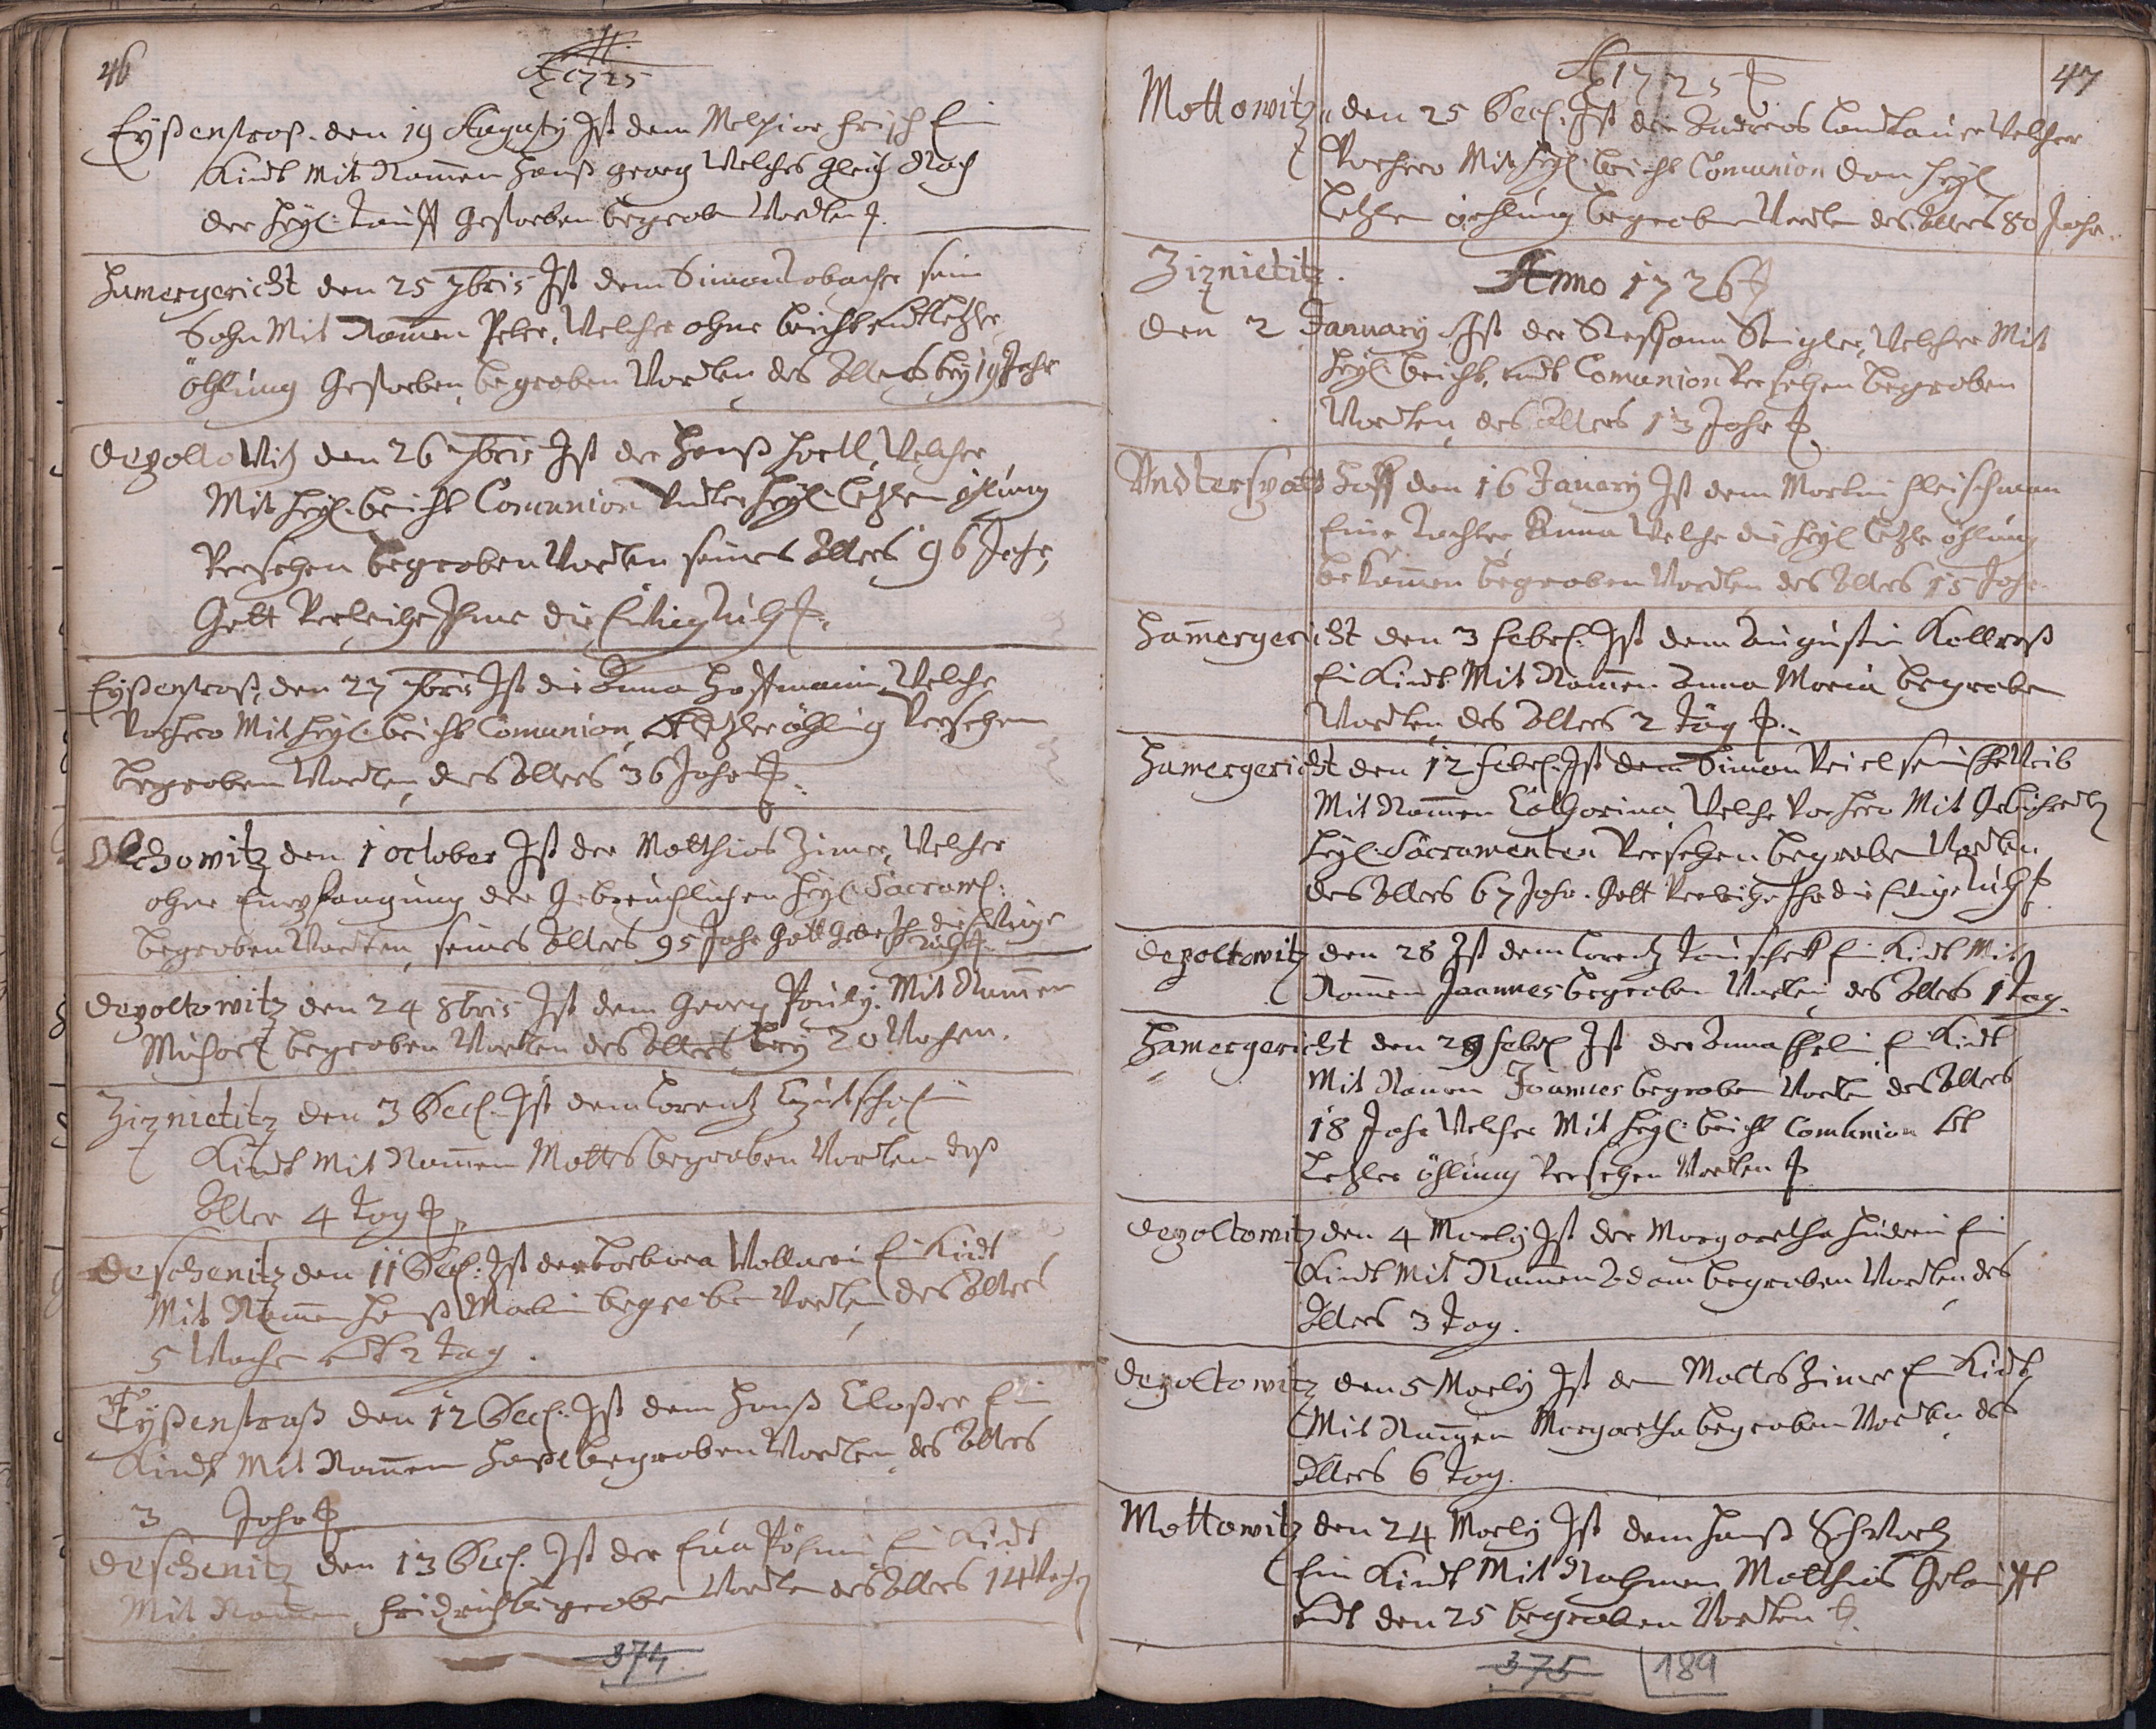 46
Ao 1725
Eyßenstroß den 19 Augusty Ist dem Melchior Frisch Ein
Kindt Mit Nammen Hanß Georg Welches gleich Nach
der heyl: Tauff gestorben begraben Worden
Hamergericht den 25 7bris Ist dem Simon sein
Sohn Mit Nammen Peter, Welcher ohne beicht undt letzte
öhlung gestorben, begraben Worden des Alters bey 19 Jahr
Depoltowitz den 26 7bris Ist der Hanß Welcher
Mit heyl. beicht Comunion undt der heyl. letzten öhlung
Versehen begraben Worden seines Alters 96 Jahr,
Gott Verleihe Ihme die Ewige Ruh
Eyßenstroß, den 27 7bris Ist die Anna Hoffmanin, Welche
Vorhero Mit heyl. beicht Comunion, letzter öhlung Versehen
begraben Worden, des Alters 36 Jahr
Olchowitz den 1 october Ist der Matthias Zimer, Welcher
ohne Empfangung der Gebreuchlichen heyl. Sacram:
begraben Worden, seines Alters 95 Jahr Gott Gebe Ihm die Ewige
Ruh
Depoltowitz den 24 8bris Ist dem Georg Pauly. Mit Nammen
Michael begraben Worden des Alters bey 20 Wochen.
Ziznietitz den 3 Dec. Ist dem Lorentz Ein
Kindt Mit Nammen Mattes begraben Worden deß
Alter 4 tag
Deschenitz den 11 Dec: Ist der Barbara Ein Kindt
Mit Nammen Hanß Martin begraben Worden, des Alters
5 Wochen undt 2 tag.
Eyßenstraß den 12 Dec. Ist dem Hanß Closter Ein
Kindt Mit Nammen begraben Worden, des Alters
3 Jahr
Deschenitz den 13 Dec. Ist der Eva Pöhmin Ein Kindt
Mit Nammen Fridrich begraben Worden des Alters 14 Wochen
374
Ao 1725
47
Mottowitz, den 25 Dec. Ist der Andreas Welcher
Vorhero Mit heyl: beicht Comunion dan heyl
letzten öehlung begraben Worden des Alters 80 Jahr.
Ziznietitz. Anno 1726
den 2 January Ist der Steffann Stigler, Welcher Mit
heyl. beicht, undt Comunion Versehen begraben
Worden, des Alters 13 Jahr
Hoff den 16 Janary Ist dem Martin Fleischman
Eine Tochter Anna Welche die heyl letzte öhlung
bekammen begraben Worden des Alters 15 Jahr.
Hamergericht den 3 Febr. Ist dem Augustin Kollroß
Ein Kindt Mit Nammen Anna Maria begraben
Worden, des Alters 2 täg
Hamergericht den 12 Febr. Ist dem Simon sein Eheweib
Mit Nammen Catharina, Welche Vorhero Mit
heyl. Sacramenten Versehen begraben Worden
des Alters 67 Jahr. Gott Verleihe Ihr die Ewige Ruh
Depoltowitz den 28 Ist dem Lorentz Ein Kindt Mit
Nammen Joannes begraben Worden des Alters 1 Tag.
Hamergericht den 29 Febr Ist der Anna Ein Kindt
Mit Namen Joannes begraben Worden des Alters
18 Jahr Welcher Mit heyl: beicht Comunion undt
letzter öhlung Versehen Worden
Depoltowitz den 4 Martij Ist der Margaretha Ein
Kindt Mit Nammen Adam begraben Worden des
Alters 3 tag.
Depoltowitz den 5 Martij Ist dem Mattes Zimer Ein Kindt
Mit Nammen Margaretha begraben Worden, des
Alters 6 tag.
Mottowitz den 24 Martij Ist dem Hanß Schwartz
Ein Kindt Mit Nahmen Matthias Getaufft
undt den 25 begraben Worden
375 189